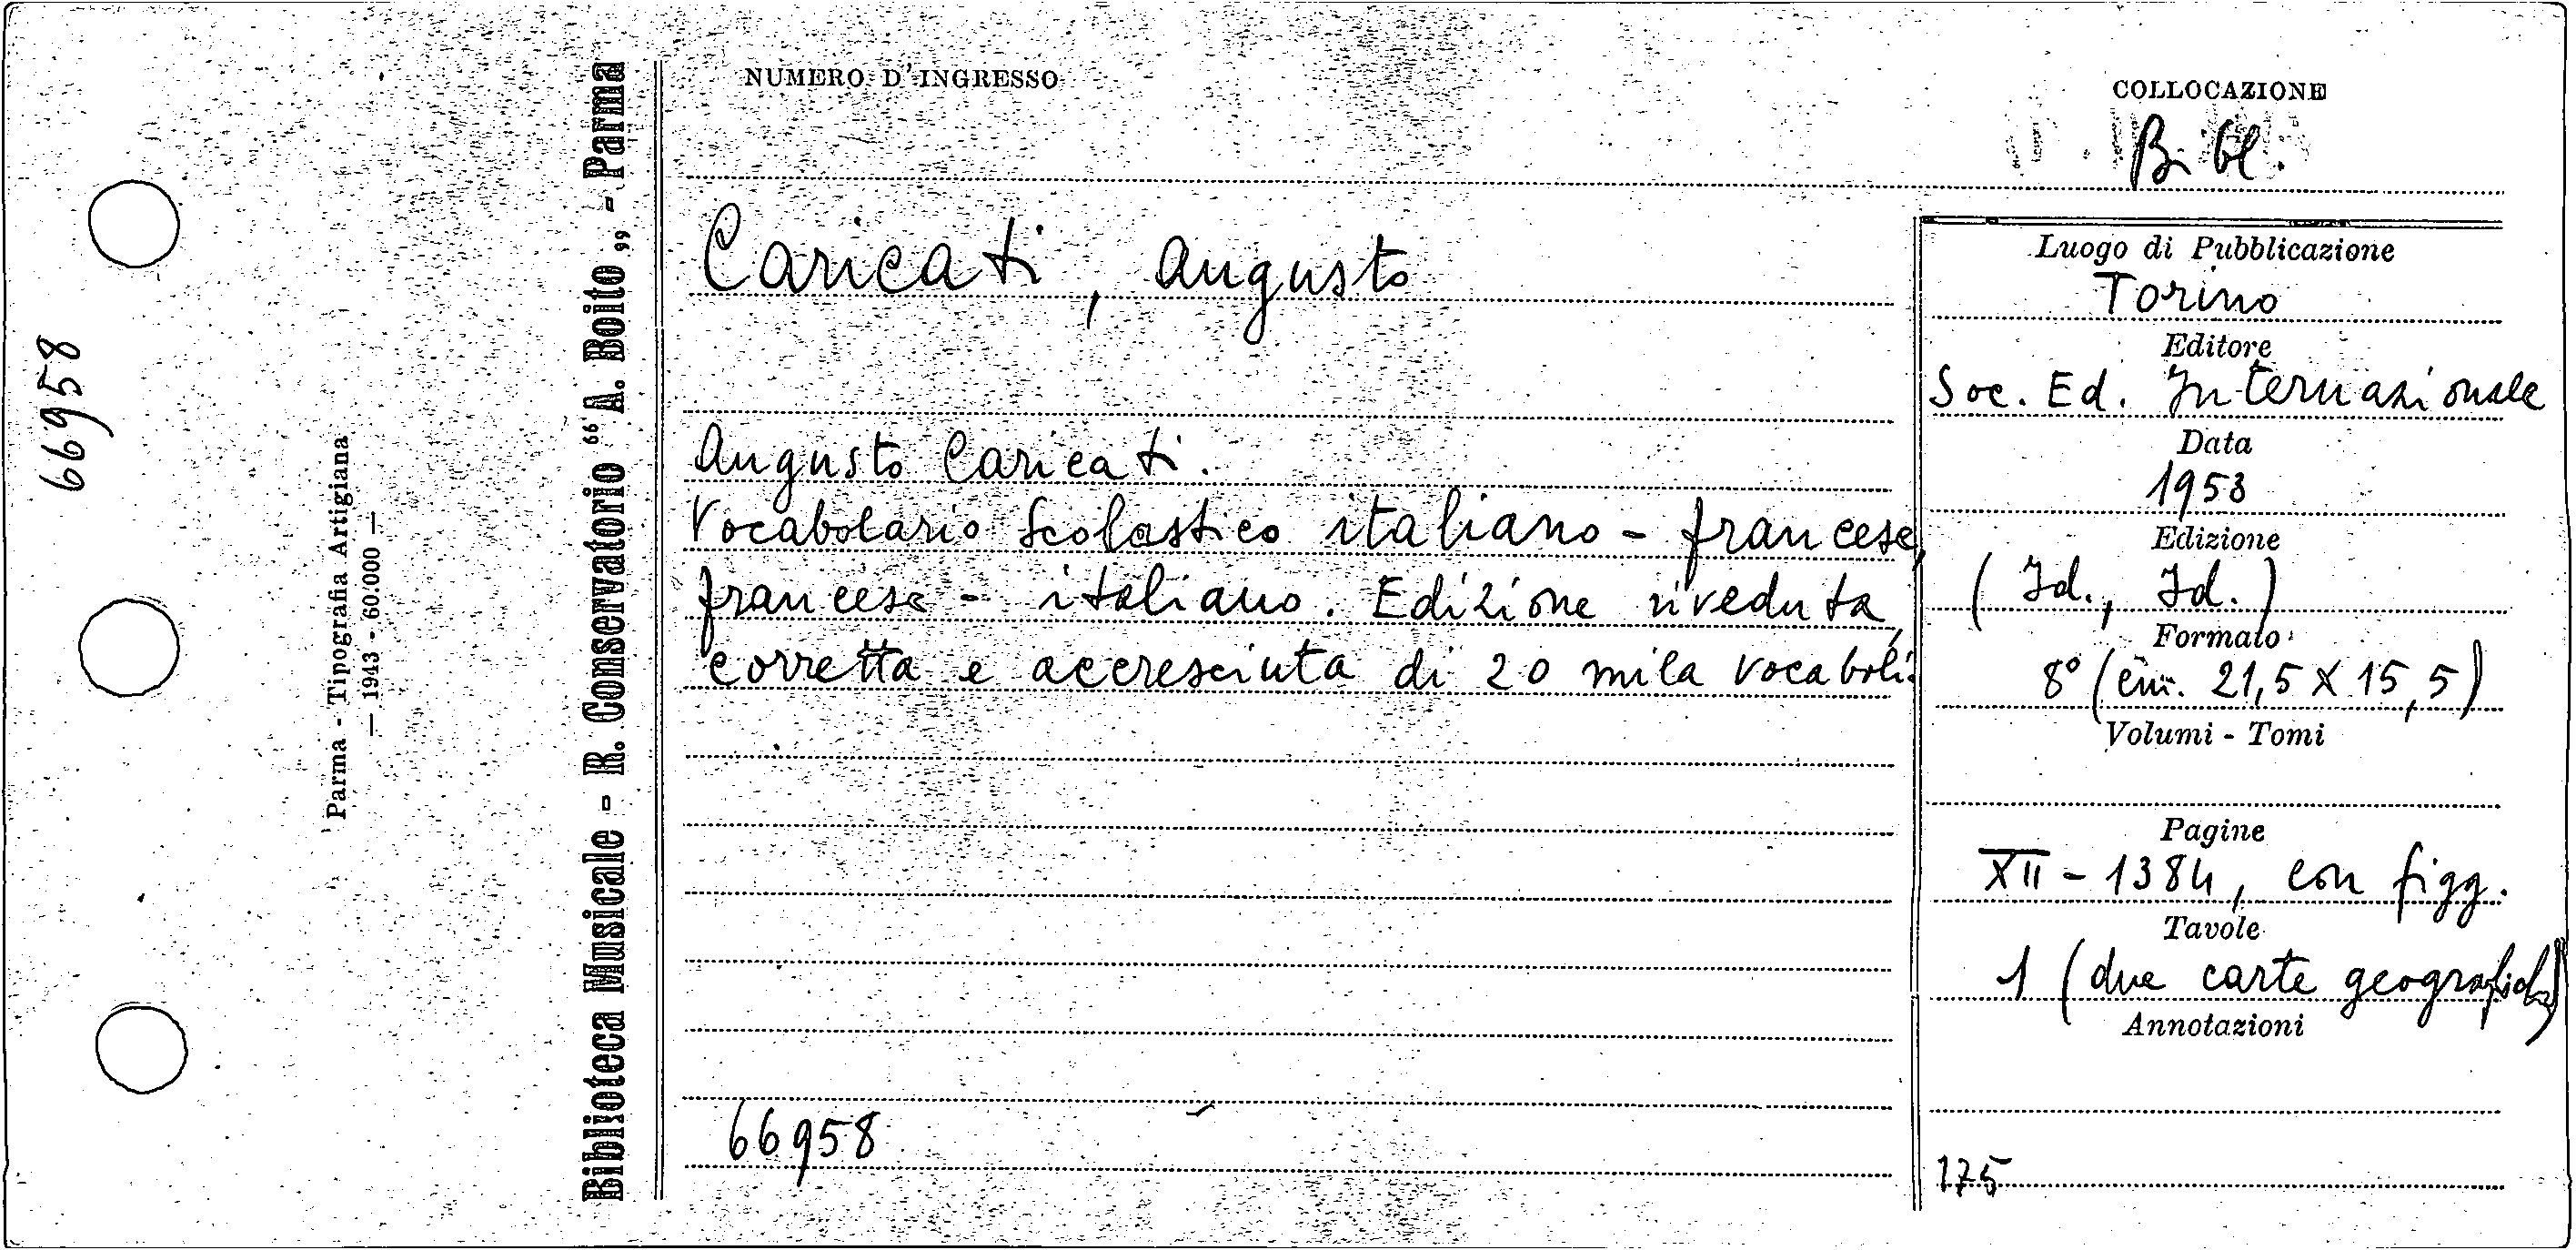 66958
Parma - Tipografia Artigiana
— 1943 - 60.000 —
Biblioteca Musicale - R. Conservatorio "A. Boito„ - Parma
NUMERO D'INGRESSO
COLLOCAZIONE
Bibl.
Caricati, Augusto
Augusto Caricati.
Vocabolario scolastico italiano - francese,
francese - italiano. Edizione riveduta,
corretta e accresciuta di 20 mila vocaboli.
66958
Luogo di Pubblicazione
Torino
Editore
Soc. Ed. Internazionale
Data
1953
Edizione
(Id., Id.)
Formato
8° (cm. 21,5 X 15,5)
Volumi - Tomi
Pagine
XII - 1384, con figg.
Tavole
1 (due carte geografiche)
Annotazioni
175